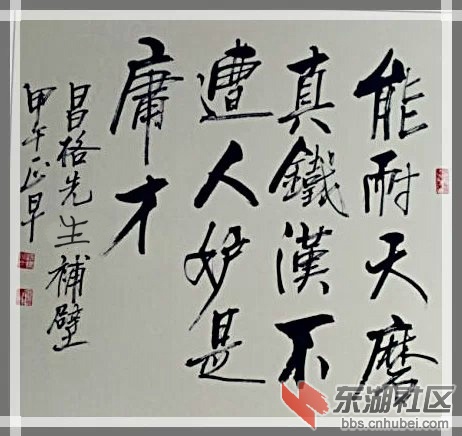 能耐天磨
真鐵漢不
遭人妒是
庸才
昌格先生補壁
甲午正早
东湖社区
bbs.cnhubei.com